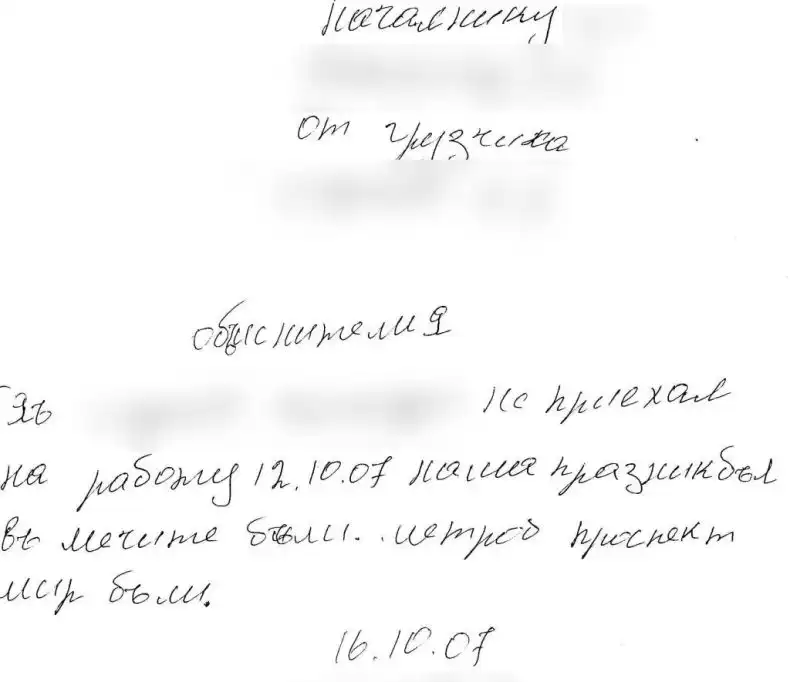 началнику
от грузчика
обыснителия
Яъ не приехал
на работу 12.10.07 наша празник был
въ мечите были. метрод проспект
мир были.
16.10.07